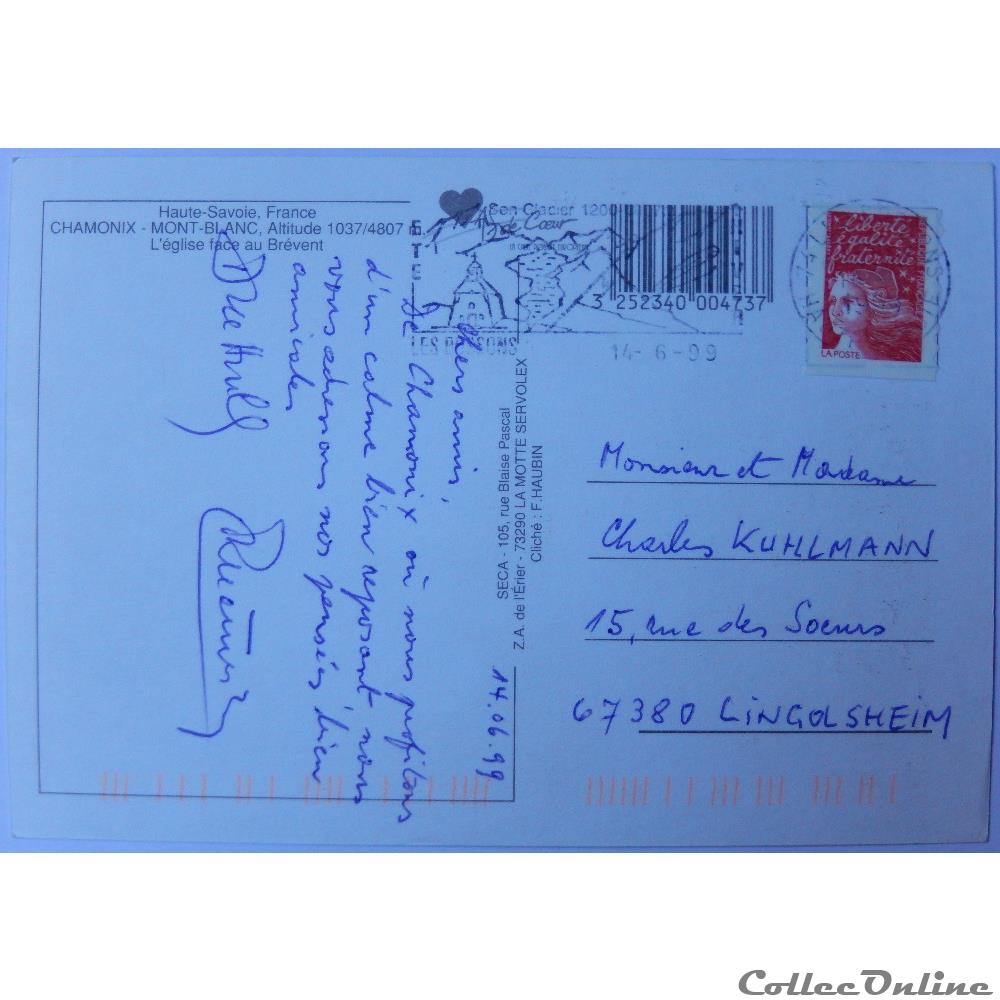 Haute-Savoie, France
CHAMONIX - MONT-BLANC, Altitude 1037/4807
L'église face au Brévent
Son Glacier 1200
de Cœur
ETE
LES BOSSONS
3 252340 004737
14-6-99
liberté
égalité
fraternité
LA POSTE
SECA - 105, rue Blaise Pascal
Z.A. de l'Érier - 73290 LA MOTTE SERVOLEX
Cliché : F.HAUBIN
14.06.99
Chers amis,
De Chamonix où nous profitons
d'un calme bien reposant, nous
vous adressons nos pensées bien
amicales
Monsieur et Madame
Charles KUHLMANN
15, rue des Soeurs
67380 LINGOLSHEIM
CollecOnline